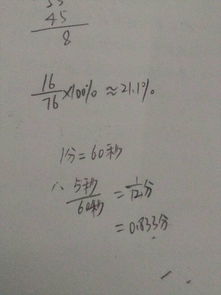 45
8
16/76×100%≈21.1%
1分=60秒
∴ 5秒/60秒=1/12分
=0.833分